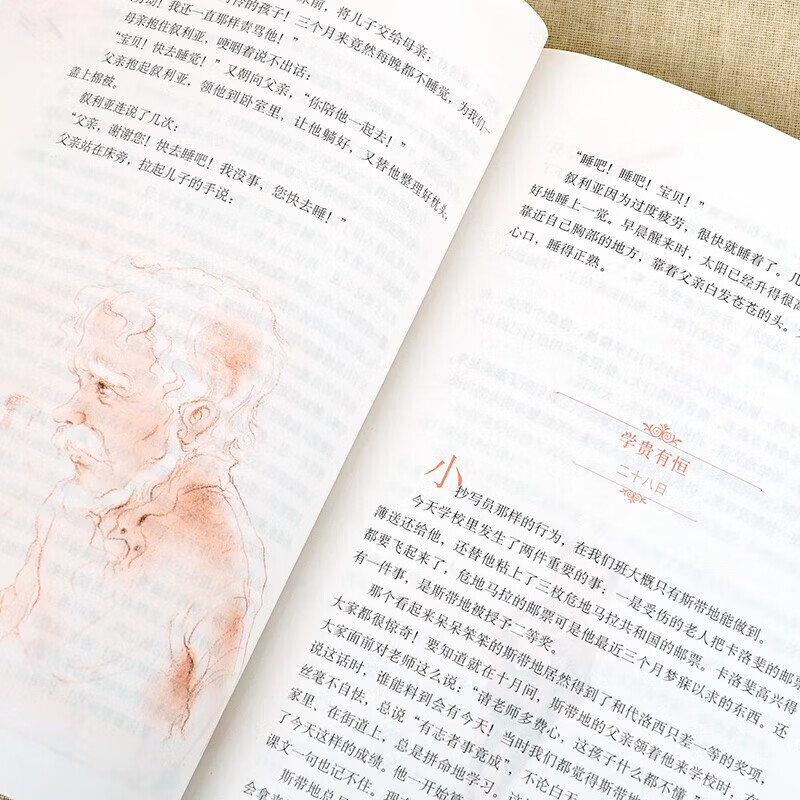 前，将儿子交给母亲：
的孩子！三个月来竟然每晚都不睡觉，为我们一
我还一直那样责骂他！”
母亲抱住叙利亚，哽咽着说不出话：
“宝贝！快去睡觉！”又朝向父亲，“你陪他一起去！”
父亲抱起叙利亚，领他到卧室里，让他躺好，又替他整理好枕头，
盖上棉被。
叙利亚连说了几次：
“父亲，谢谢您！快去睡吧！我没事，您快去睡！”
父亲站在床旁，拉起儿子的手说：
“睡吧！睡吧！宝贝！”
叙利亚因为过度疲劳，很快就睡着了。几
好地睡上一觉。早晨醒来时，太阳已经升得很高
靠近自己胸部的地方，靠着父亲白发苍苍的头。
心口，睡得正熟。
学贵有恒
二十八日
小抄写员那样的行为，在我们班大概只有斯带地能做到。
今天学校里发生了两件重要的事：一是受伤的老人把卡洛斐的邮票
簿送还给他，还替他粘上了三枚危地马拉共和国的邮票。卡洛斐高兴得
都要飞起来了，危地马拉的邮票可是他最近三个月梦寐以求的东西。还
有一件事，是斯带地被授予二等奖。
那个看起来呆呆笨笨的斯带地居然得到了和代洛西只差一等的奖项，
大家都很惊奇！要知道就在十月间，斯带地的父亲领着他来学校时，在
大家面前对老师这么说：“请老师多费心，这孩子什么都不懂
说这话时，谁能料到会有今天！当时我们都觉得斯带地
丝毫不自怯，总说“有志者事竟成”，不论白天
家里、在街道上，总是拼命地学习。
了今天这样的成绩。他一开始
课文一句也记不住。现
斯带地总
会拿来